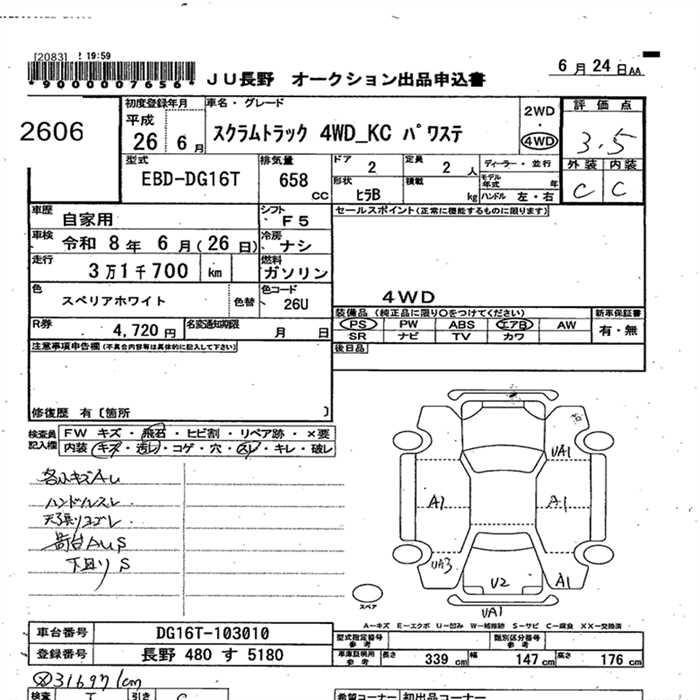 [2083] 19:59
*9000007656*
JU長野 オークション出品申込書
6月24日AA
2606
初度登録年月
平成
26 6月
車名・グレード
スクラムトラック 4WD_KC パワステ
2WD
・
4WD
評価点
3.5
外装 内装
C C
型式
EBD-DG16T
排気量
658 cc
ドア 2
定員 2人
形状 ヒラB
積載 kg
ディーラー・並行
モデル年式 年
ハンドル 左・右
車歴 自家用
シフト F5
車検 令和 8年 6月(26日)
冷房 ナシ
走行 3万1千700 km
燃料 ガソリン
色 スペリアホワイト 色替
色コード 26U
R券 4,720円
名変通知期限 月 日
セールスポイント(正常に機能するものに限ります)
4WD
装備品(純正品に限り○をつけてください)
PS PW ABS エアB AW
SR ナビ TV カワ
新車保証書
有・無
後日品
注意事項申告欄(不具合内容等は具体的に記入して下さい)
修復歴 有〔箇所 〕
検査員記入欄
FW キズ・飛石・ヒビ割・リペア跡・×要
内装 キズ・汚レ・コゲ・穴・スレ・キレ・破レ
各部キズAU
ハンドルスレ
天張りヨゴレ
荷台AUS
下回りS
UA1
A1
A1
UA3
U2
A1
UA1
スペア
A-キズ E-エクボ U-凹み W-補修跡 S-サビ C-腐食 XX-交換済
車台番号 DG16T-103010
登録番号 長野 480 す 5180
型式指定番号 参考
類別区分番号 参考
車庫証明用 参考
長さ 339 cm 幅 147 cm 高さ 176 cm
31697km
検査 T 引き C
希望コーナー 初出品コーナー